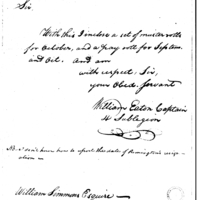 Sir,
With this I inclose a set of muster rolls
for October, and a pay roll for Septem.
and Oct. And am
with respect, Sir,
your Obed. servant
William Eaton Captain
4 Sublegion
know how to
the date of
ation
William Simmons Esquire